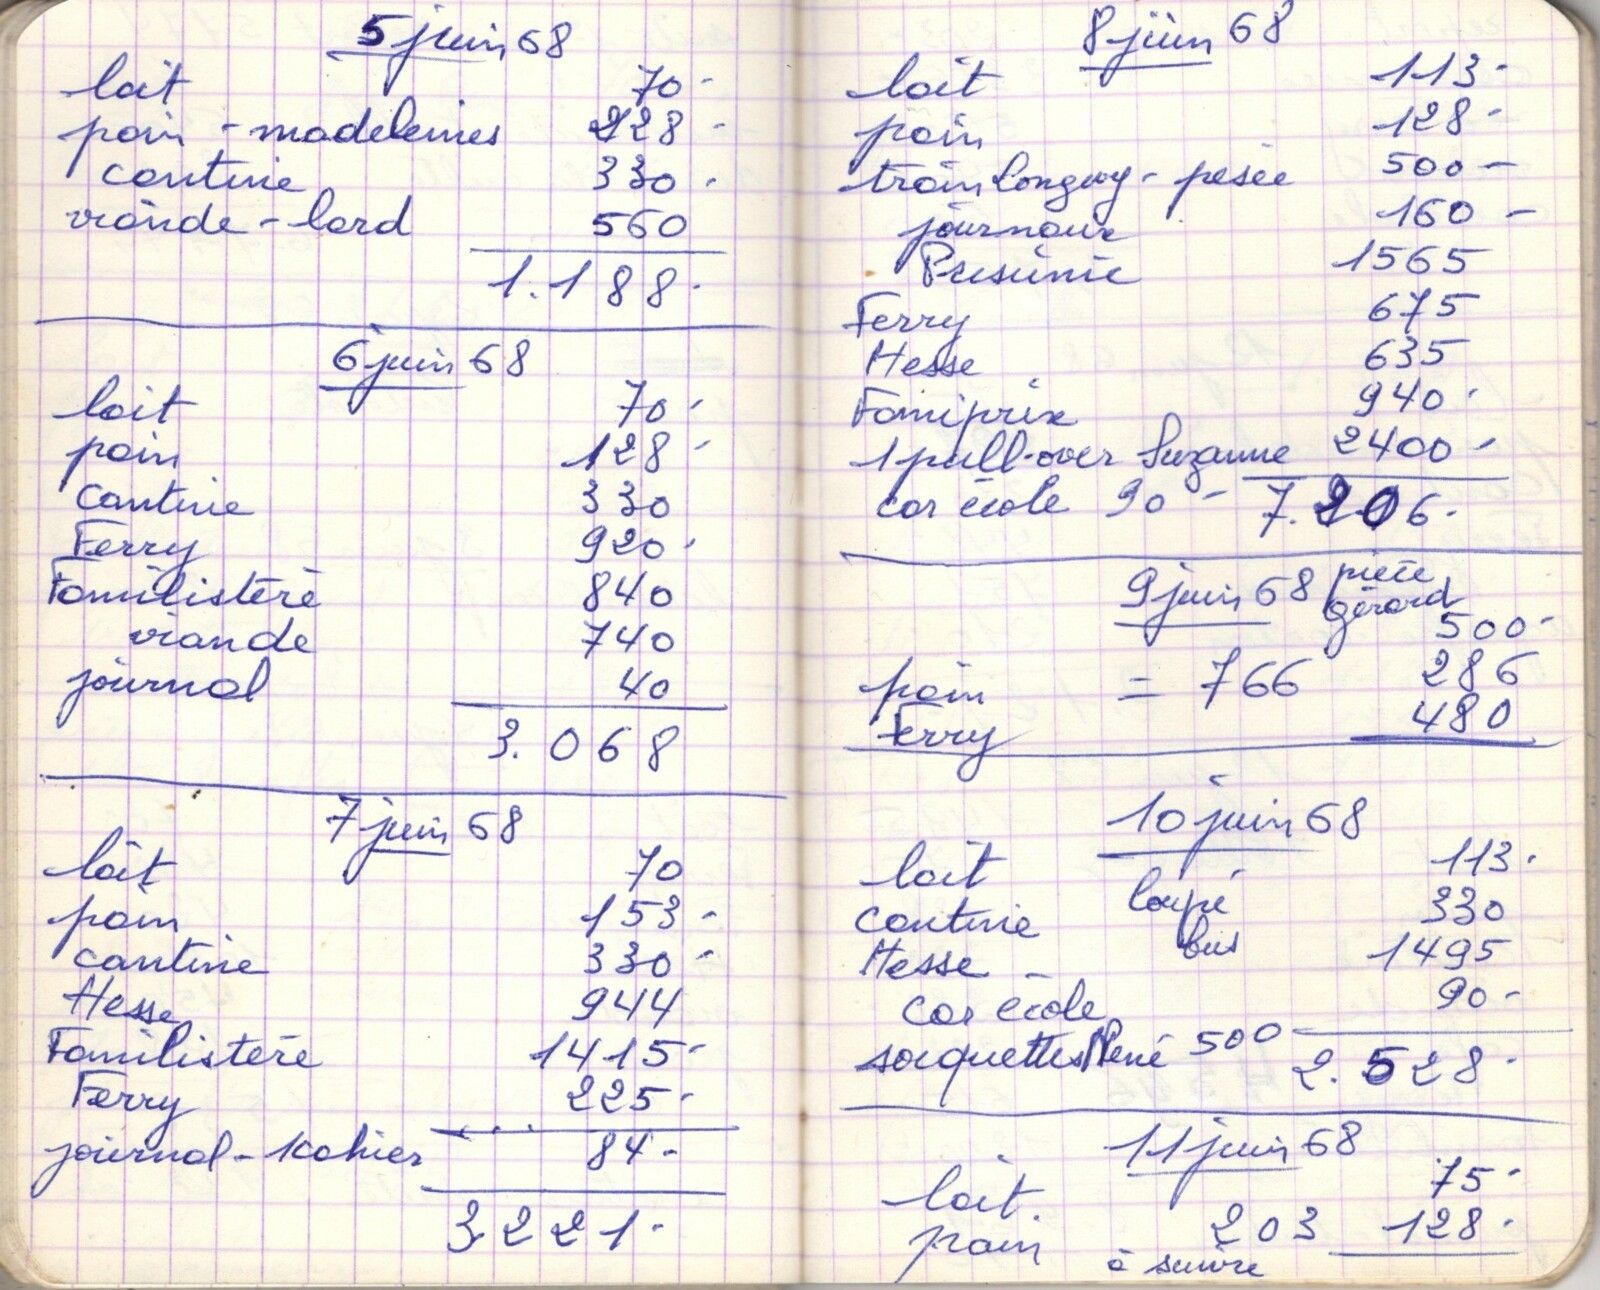 5 juin 68
lait 70-
pain - madeleines 228-
cantine 330-
viande - lard 560
1.188-
6 juin 68
lait 70-
pain 128-
cantine 330
Ferry 920-
Familistère 840
viande 740
journal 40
3.068
7 juin 68
lait 70
pain 153-
cantine 330-
Hesse 944
Familistère 1415-
Ferry 225-
journal - 1 cahier 84-
3.221-
8 juin 68
lait 113-
pain 128-
train Longwy - pesée 500-
journaux 160-
Presunic 1565
Ferry 675
Hesse 635
Famiprix 940-
1 pull-over Suzanne 2400-
car école 90- 7.206-
9 juin 68 pièce
Gérard
500-
pain = 766 286
Ferry 480
10 juin 68
lait 113-
cantine loupé 330
Hesse - bus 1495
car école 90-
socquettes René 500 2.528-
11 juin 68
lait 75-
pain 203 128-
à suivre